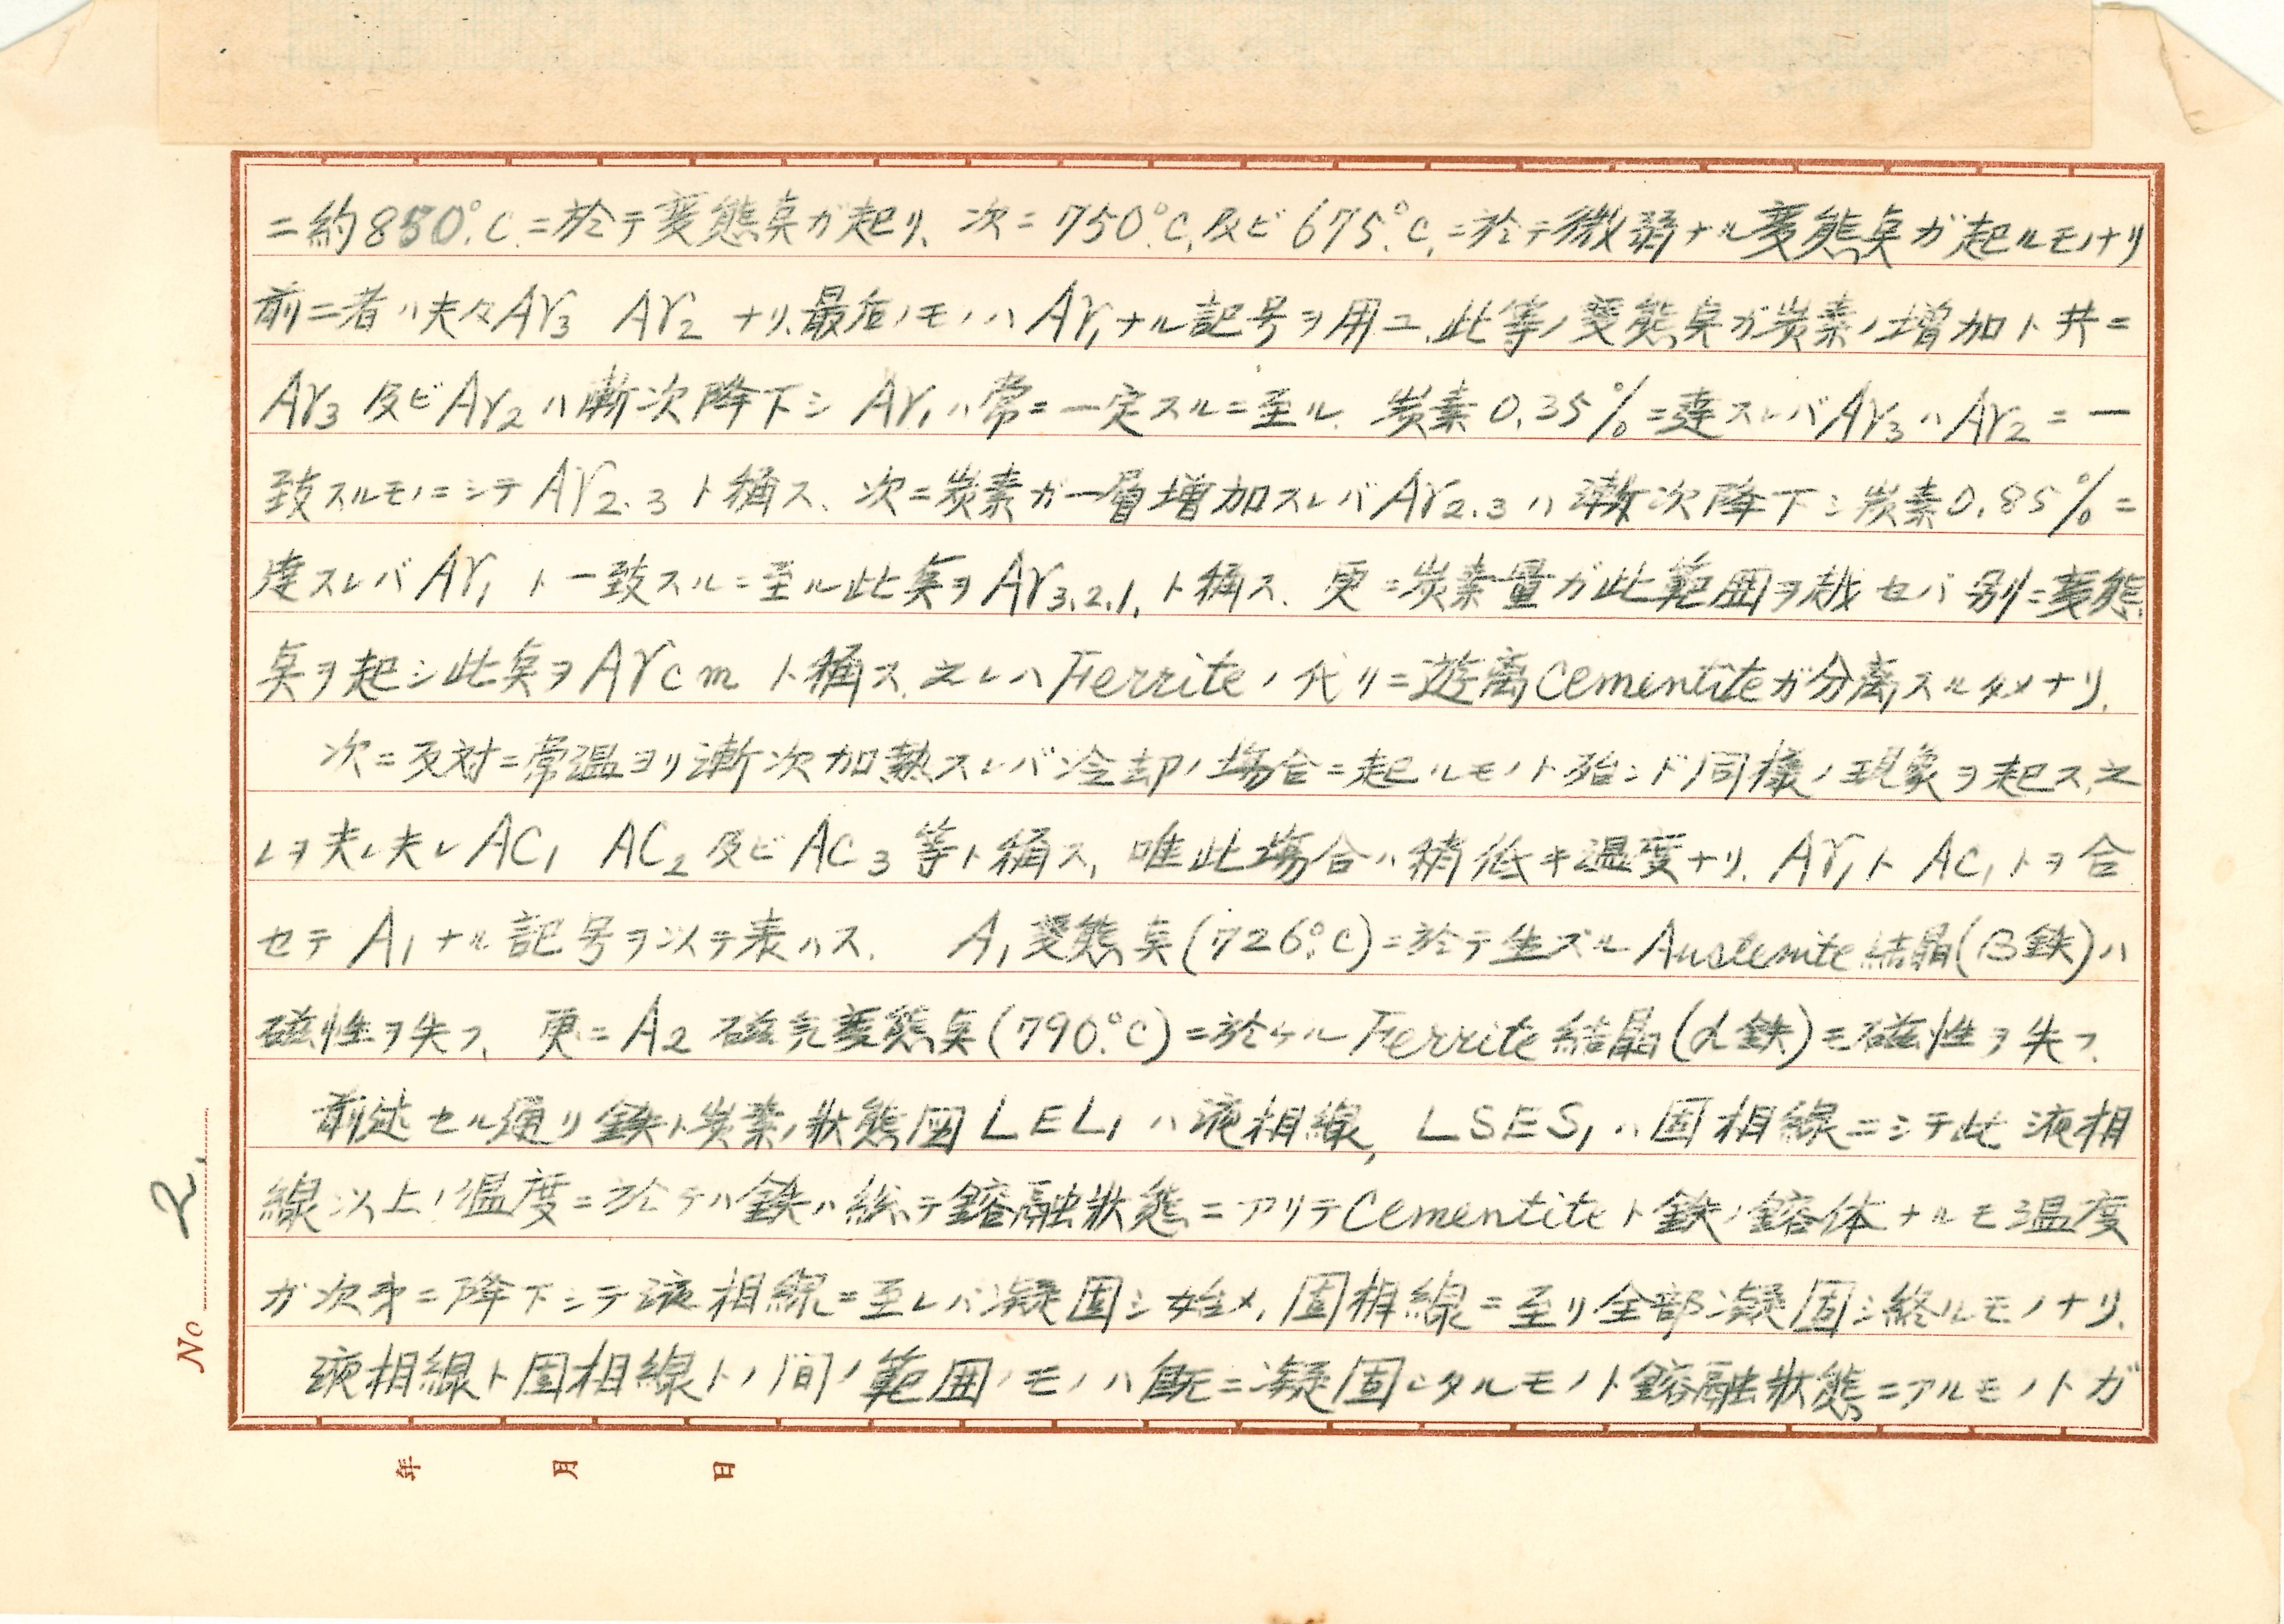 ニ約850°C.ニ於テ変態点ガ起リ、次ニ750°C.及ビ675°C.ニ於テ微弱ナル変態点ガ起ルモノナリ
前二者ハ夫々Ar3 Ar2 ナリ、最后ノモノハAr1ナル記号ヲ用ユ、此等ノ変態点ガ炭素ノ増加ト共ニ
Ar3及ビAr2ハ漸次降下シAr1ハ常ニ一定スルニ至ル. 炭素0.35%ニ達スレバAr3ハAr2ニ一
致スルモノニシテAr2.3ト称ス、次ニ炭素ガ一層増加スレバAr2.3ハ漸次降下シ炭素0.85%ニ
達スレバAr1ト一致スルニ至ル此点ヲAr3.2.1.ト称ス. 更ニ炭素量ガ此範囲ヲ越セバ別ニ変態
点ヲ起シ此点ヲArcmト称ス、之レハFerriteノ代リニ遊離Cementiteガ分離スルタメナリ.
次ニ反対ニ常温ヨリ漸次加熱スレバ冷却ノ場合ニ起ルモノト殆ンド同様ノ現象ヲ起ス、之
レヲ夫レ夫レAC1 AC2及ビAC3等ト称ス、唯此場合ハ稍低キ温度ナリ. Ar1トAC1トヲ合
セテA1ナル記号ヲ以テ表ハス. A1変態点(726°C)ニ於テ生ズルAustenite結晶(B鉄)ハ
磁性ヲ失フ、更ニA2磁気変態点(790°C)ニ於ケルFerrite結晶(α鉄)モ磁性ヲ失フ.
前述セル通リ鉄ト炭素ノ状態図LEL1ハ液相線, LSES1ハ固相線ニシテ此液相
線以上ノ温度ニ於テハ鉄ハ総テ鎔融状態ニアリテCementiteト鉄ノ鎔体ナルモ温度
ガ次第ニ降下シテ液相線ニ至レバ凝固シ始メ、固相線ニ至リ全部凝固シ終ルモノナリ.
液相線ト固相線トノ間ノ範囲ノモノハ既ニ凝固シタルモノト鎔融状態ニアルモノトガ
No 2.
年 月 日